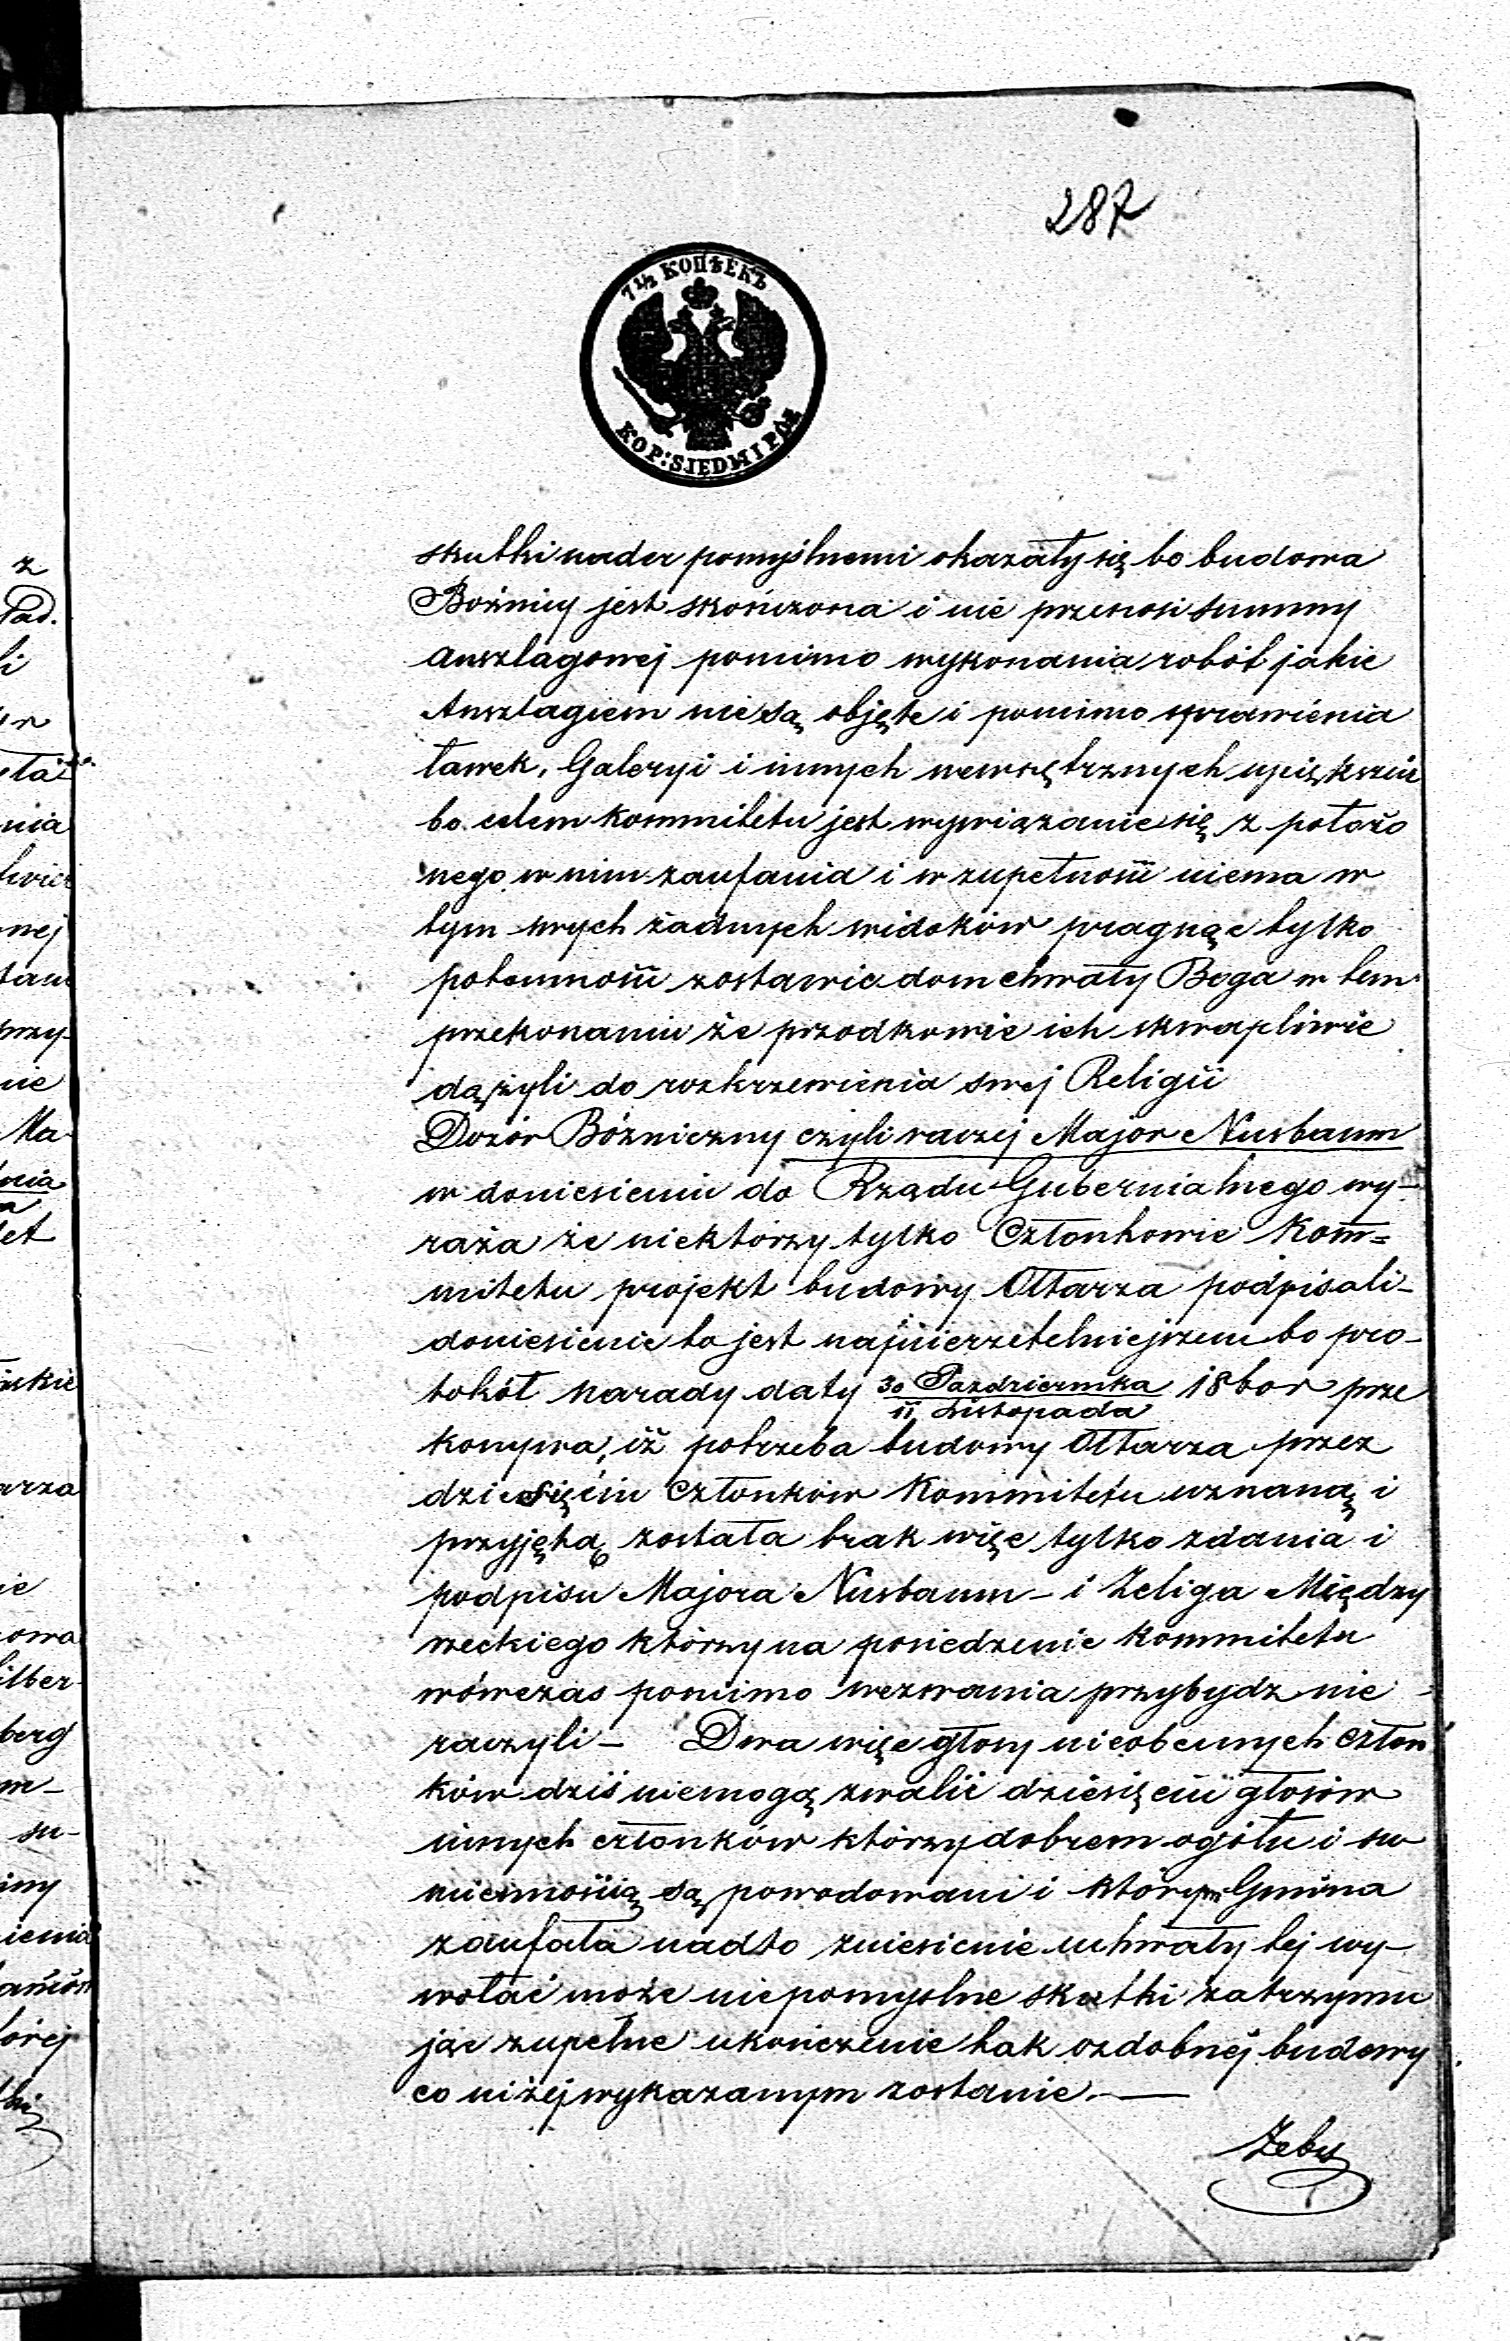 287
7½ КОПѢЕКЪ
KOP: SIEDM I PÓŁ
skutki nader pomyślnemi okazały się bo budowa
Bożnicy jest skończona i nie przenosi summy
anszlagowej pomimo wykonania robót jakie
Anszlagiem nie są objęte i pomimo sprawienia
ławek, Galeryi i innych wewnętrznych upiększeń
bo celem Kommitetu jest wywiązanie się z położo
nego w nim zaufania i w zupełności niema w
tym swych żadnych widoków pragnąc tylko
potomności zostawić dom chwały Boga w tem
przekonaniu że przodkowie ich skwapliwie
dążyli do rozkrzewienia swej Religii
Dozór Bóżniczny czyli raczej Major Nusbaum
w doniesieniu do Rządu Gubernialnego wy-
raża że niektórzy tylko Członkowie Kom=
mitetu projekt budowy Ołtarza podpisali-
doniesienie to jest najnierzetelniejszem bo pro-
tokół narady daty 30 Października / 11 Listopada 1860 r prze
konywa, iż potrzeba budowy Ołtarza przez
dziesięciu Członków Kommitetu uznaną i
przyjętą została brak więc tylko zdania i
podpisu Majora Nusbaum - i Zeliga Między
rzeckiego którzy na posiedzenie Kommitetu
wówczas pomimo wezwania przybydz nie
raczyli - Dwa więc głosy nieobecnych Człon
ków dziś niemogą zwalić dziesięciu głosów
innych członków którzy dobrem ogółu i su
miennością są powodowani i którym Gmina
zaufała nadto zniesienie uchwały tej wy-
wołać może niepomyślne skutki zatrzymu
jąc zupełne ukończenie tak ozdobnej budowy
co niżej wykazanym zostanie. —
Żeby
z
Pad.
li
nia
nej
przy-
nie
Ma-
nia
et
arza
ie
owa
ilber-
berg
m-
su-
iny
ienia
tórej